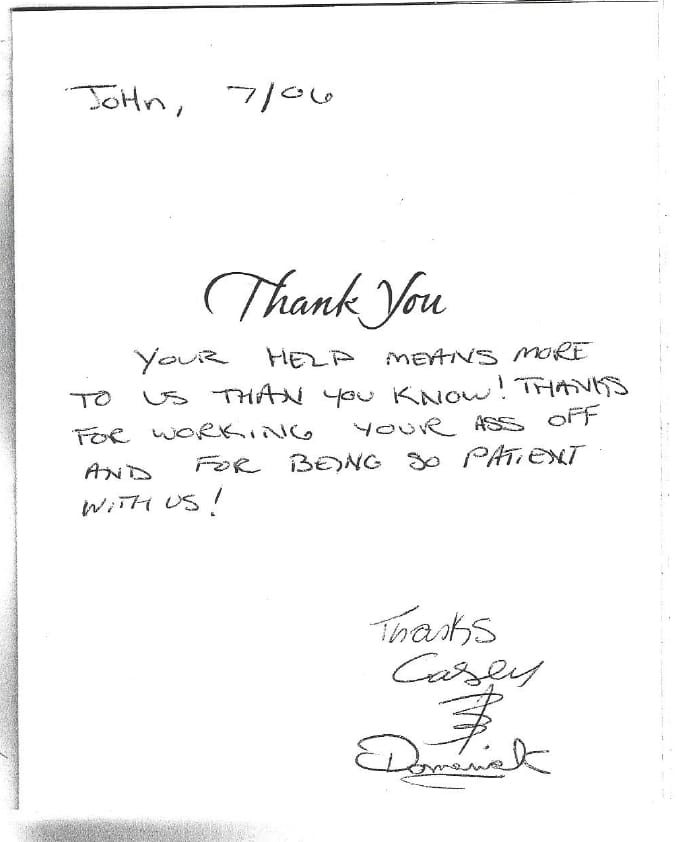 John, 7/06
Thank You
YOUR HELP MEANS MORE
TO US THAN YOU KNOW! THANKS
FOR WORKING YOUR ASS OFF
AND FOR BEING SO PATIENT
WITH US!
Thanks
Casey
&
Domenick